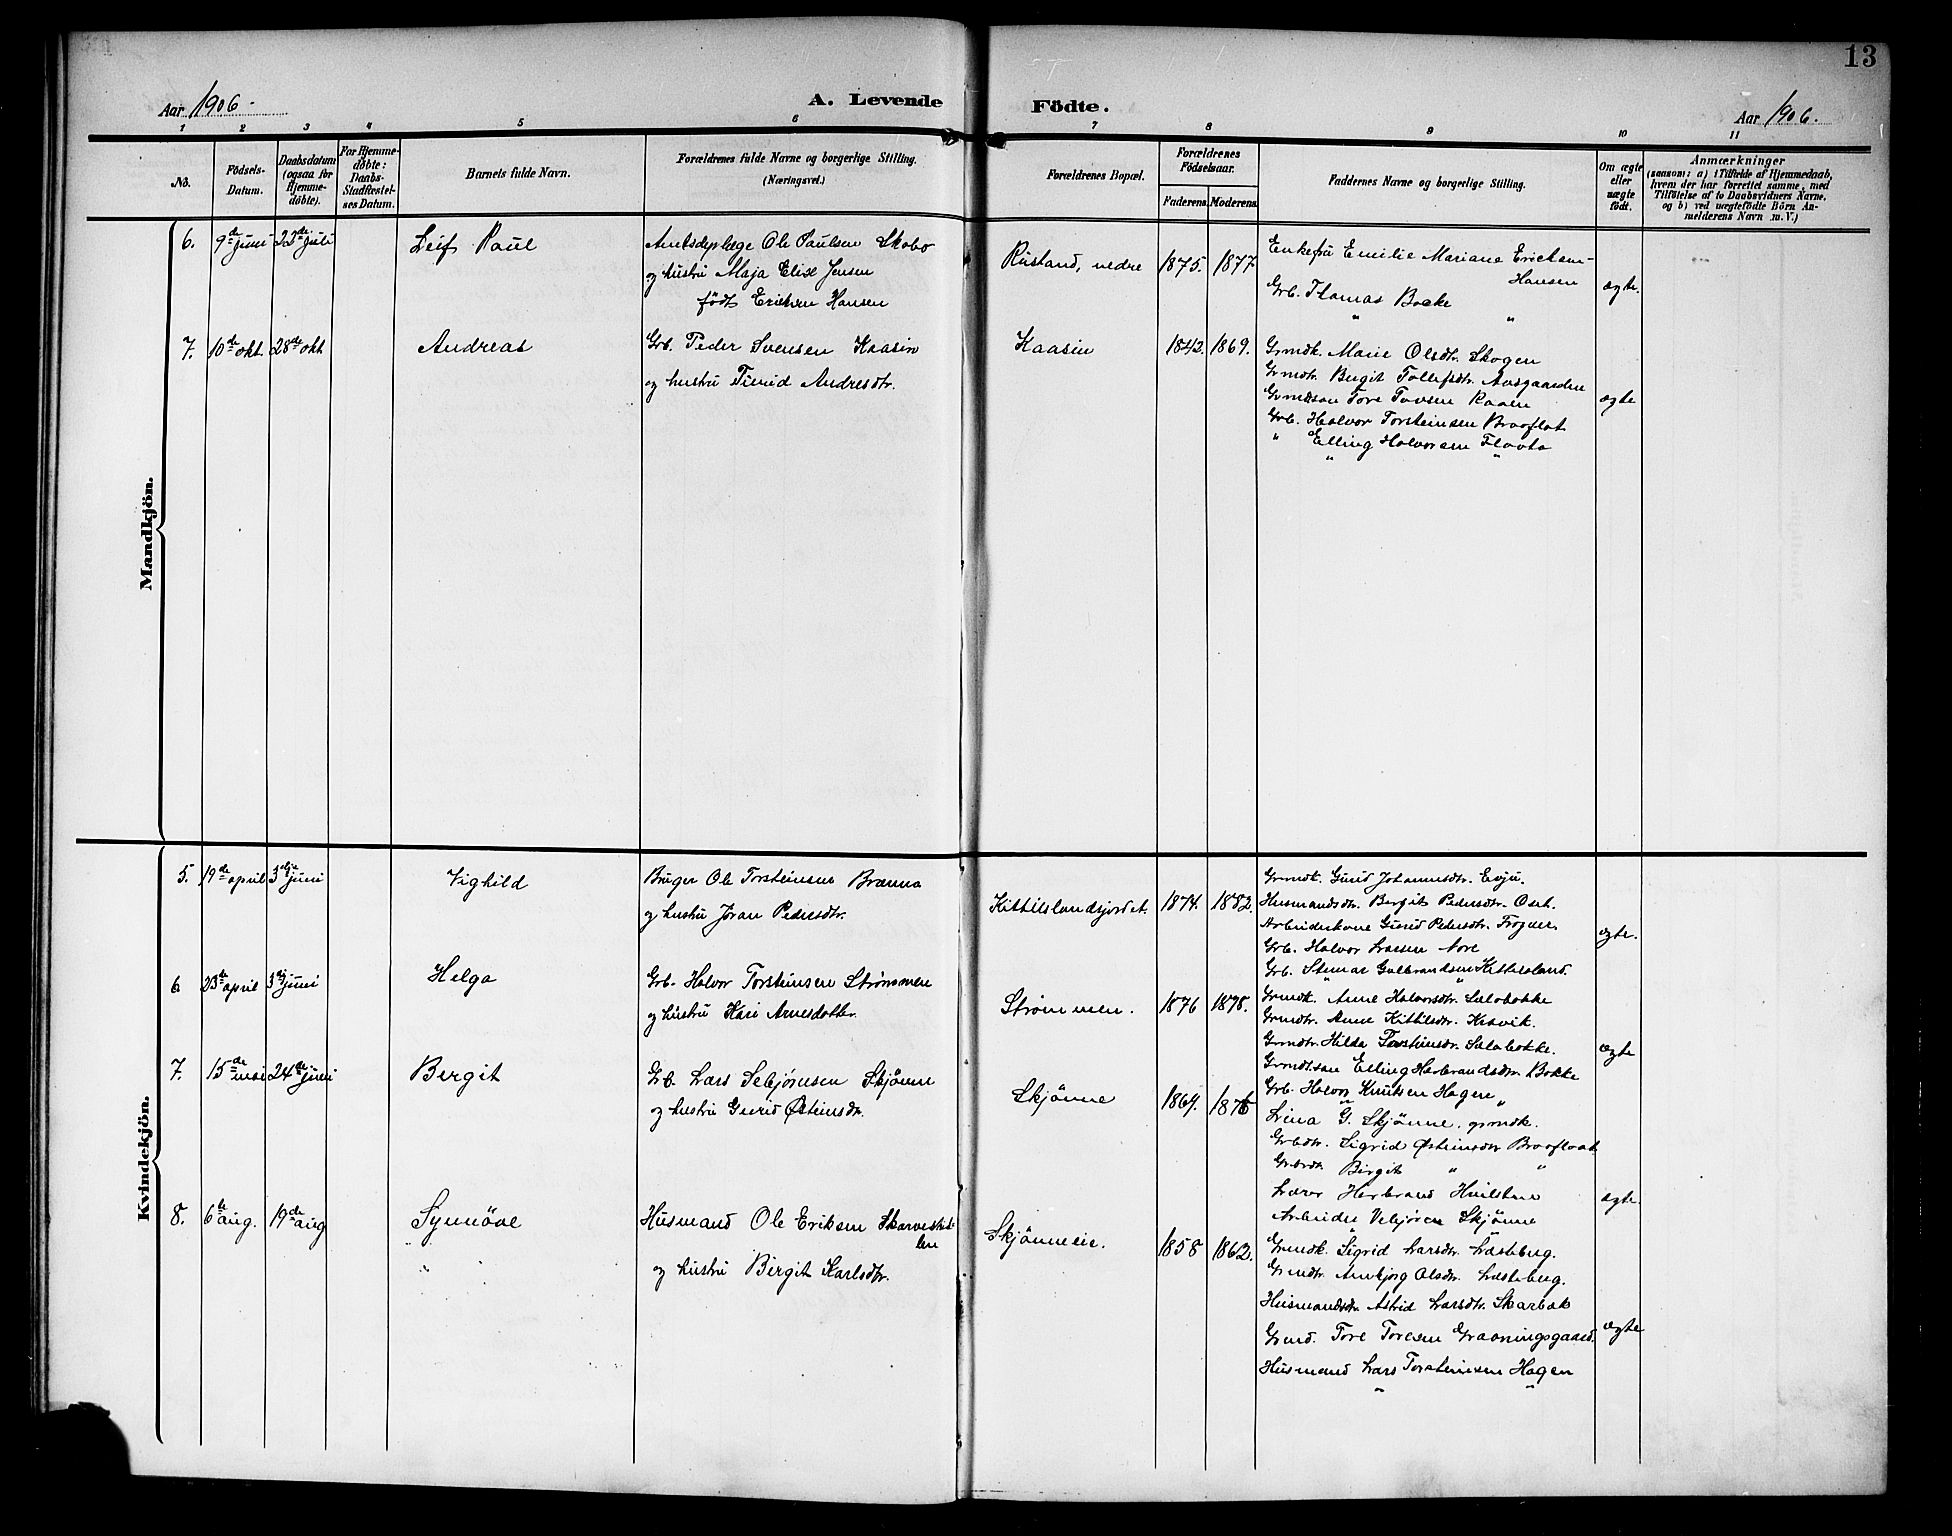 13
Aar 1906.
A. Levende Födte.
Aar 1906.
1 2 3 4 5 6 7 8 9 10 11
No.
Födsels-
Datum.
Daabsdatum
(ogsaa for
Hjemme-
döbte).
For Hjemme-
döbte:
Daabs-
Stadfæstel-
ses Datum.
Barnets fulde Navn.
Forældrenes fulde Navne og borgerlige Stilling.
(Næringsvei.)
Forældrenes Bopæl.
Forældrenes
Födselsaar.
Faderens. Moderens.
Faddernes Navne og borgerlige Stilling.
Om ægte
eller
uægte
födt.
Anmærkninger
(saasom: a) i Tilfælde af Hjemmedaab,
hvem der har forrettet samme, med
Tilföielse af to Daabsvidners Navne,
og b) ved uægtefödte Börn An-
melderens Navn m. V.)
Mandkjön.
6. 9de juni 22de juli Leif Paul
Amtsdyrlæge Ole Paulsen Skobo
og hustru Maja Elise Jensen
født Ericksen Hansen
Rustand, nedre 1875. 1877
Enkefru Emilie Mariane Ericksen-
Hansen
Grb. Thomas Bakke
" "
ægte.
7. 10de okt. 28de okt Andreas
Grb. Peder Svensen Kaasin
og hustru Turid Andresdtr.
Kaasin 1842. 1869.
Grmdk. Marie Olsdtr. Skogen
Grmdtr. Birgit Tollefsdtr. Aasgaarden
Grmdsøn Tore Tovsen Raaen
Grb. Halvor Torsteinsen Braaflat
" Elling Halvorsen Flaata
" "
ægte
Kvindekjön.
5. 19de april 3die juni Vighild
Bruger Ole Torsteinsen Brænna
og hustru Jøran Pedersdtr.
Kittilslandsjordet. 1874. 1882.
Grmdk. Gurid Johannesdtr. Evju.
Husmandsdtr. Bergit Pedersdtr. Øset.
Arbeiderkone Gunid Pedersdtr. Frogner
Grb. Halvor Larsen Nore
Grb. Steinar Gulbrandsen Kittilsland.
" "
ægte.
6. 23de april 3die juni Helga
Grb. Halvor Torsteinsen Strømmen
og hustru Kari Arnesdatter.
Strømmen. 1876 1878.
Grmdk. Anne Halvorsdtr. Sælabakke
Grmdtr. Anne Kittilsdtr. Kravik.
Grmdtr. Hilda Torsteinsdtr. Sælabakke.
Grmdsøn Elling Herbrandsdtr. Bakke
Grb. Halvor Knutsen Hagen
" "
ægte
7. 15de mai 24de juni Bergit
Grb. Lars Sebjørnsen Skjønne
og hustru Gurid Østeinsdtr.
Skjønne 1864. 1876
Lina G. Skjønne, grmdk.
Grbdtr. Sigrid Østeinsdtr Braaflaat
Grbrdtr. Birgit " "
Lærer Herbrand Hvilsteen
Arbeider Vebjørn Skjønne
" "
ægte.
8. 6te aug. 19de aug Synnøve
" "
Husmand Ole Eriksen Skarveskil-
len
og hustru Birgit Karlsdtr.
Skjønneeie. 1858 1862.
Grmdk. Sigrid Larsdtr. Læstebrg.
Grmdtr. Ambjørg Olsdtr. Læstebrg.
Husmandsdtr. Astrid Larsdtr. Skarbak
Grmd. Tore Toresen Graaningsgaard.
Husmand Lars Torsteinsen Hagen
" "
ægte